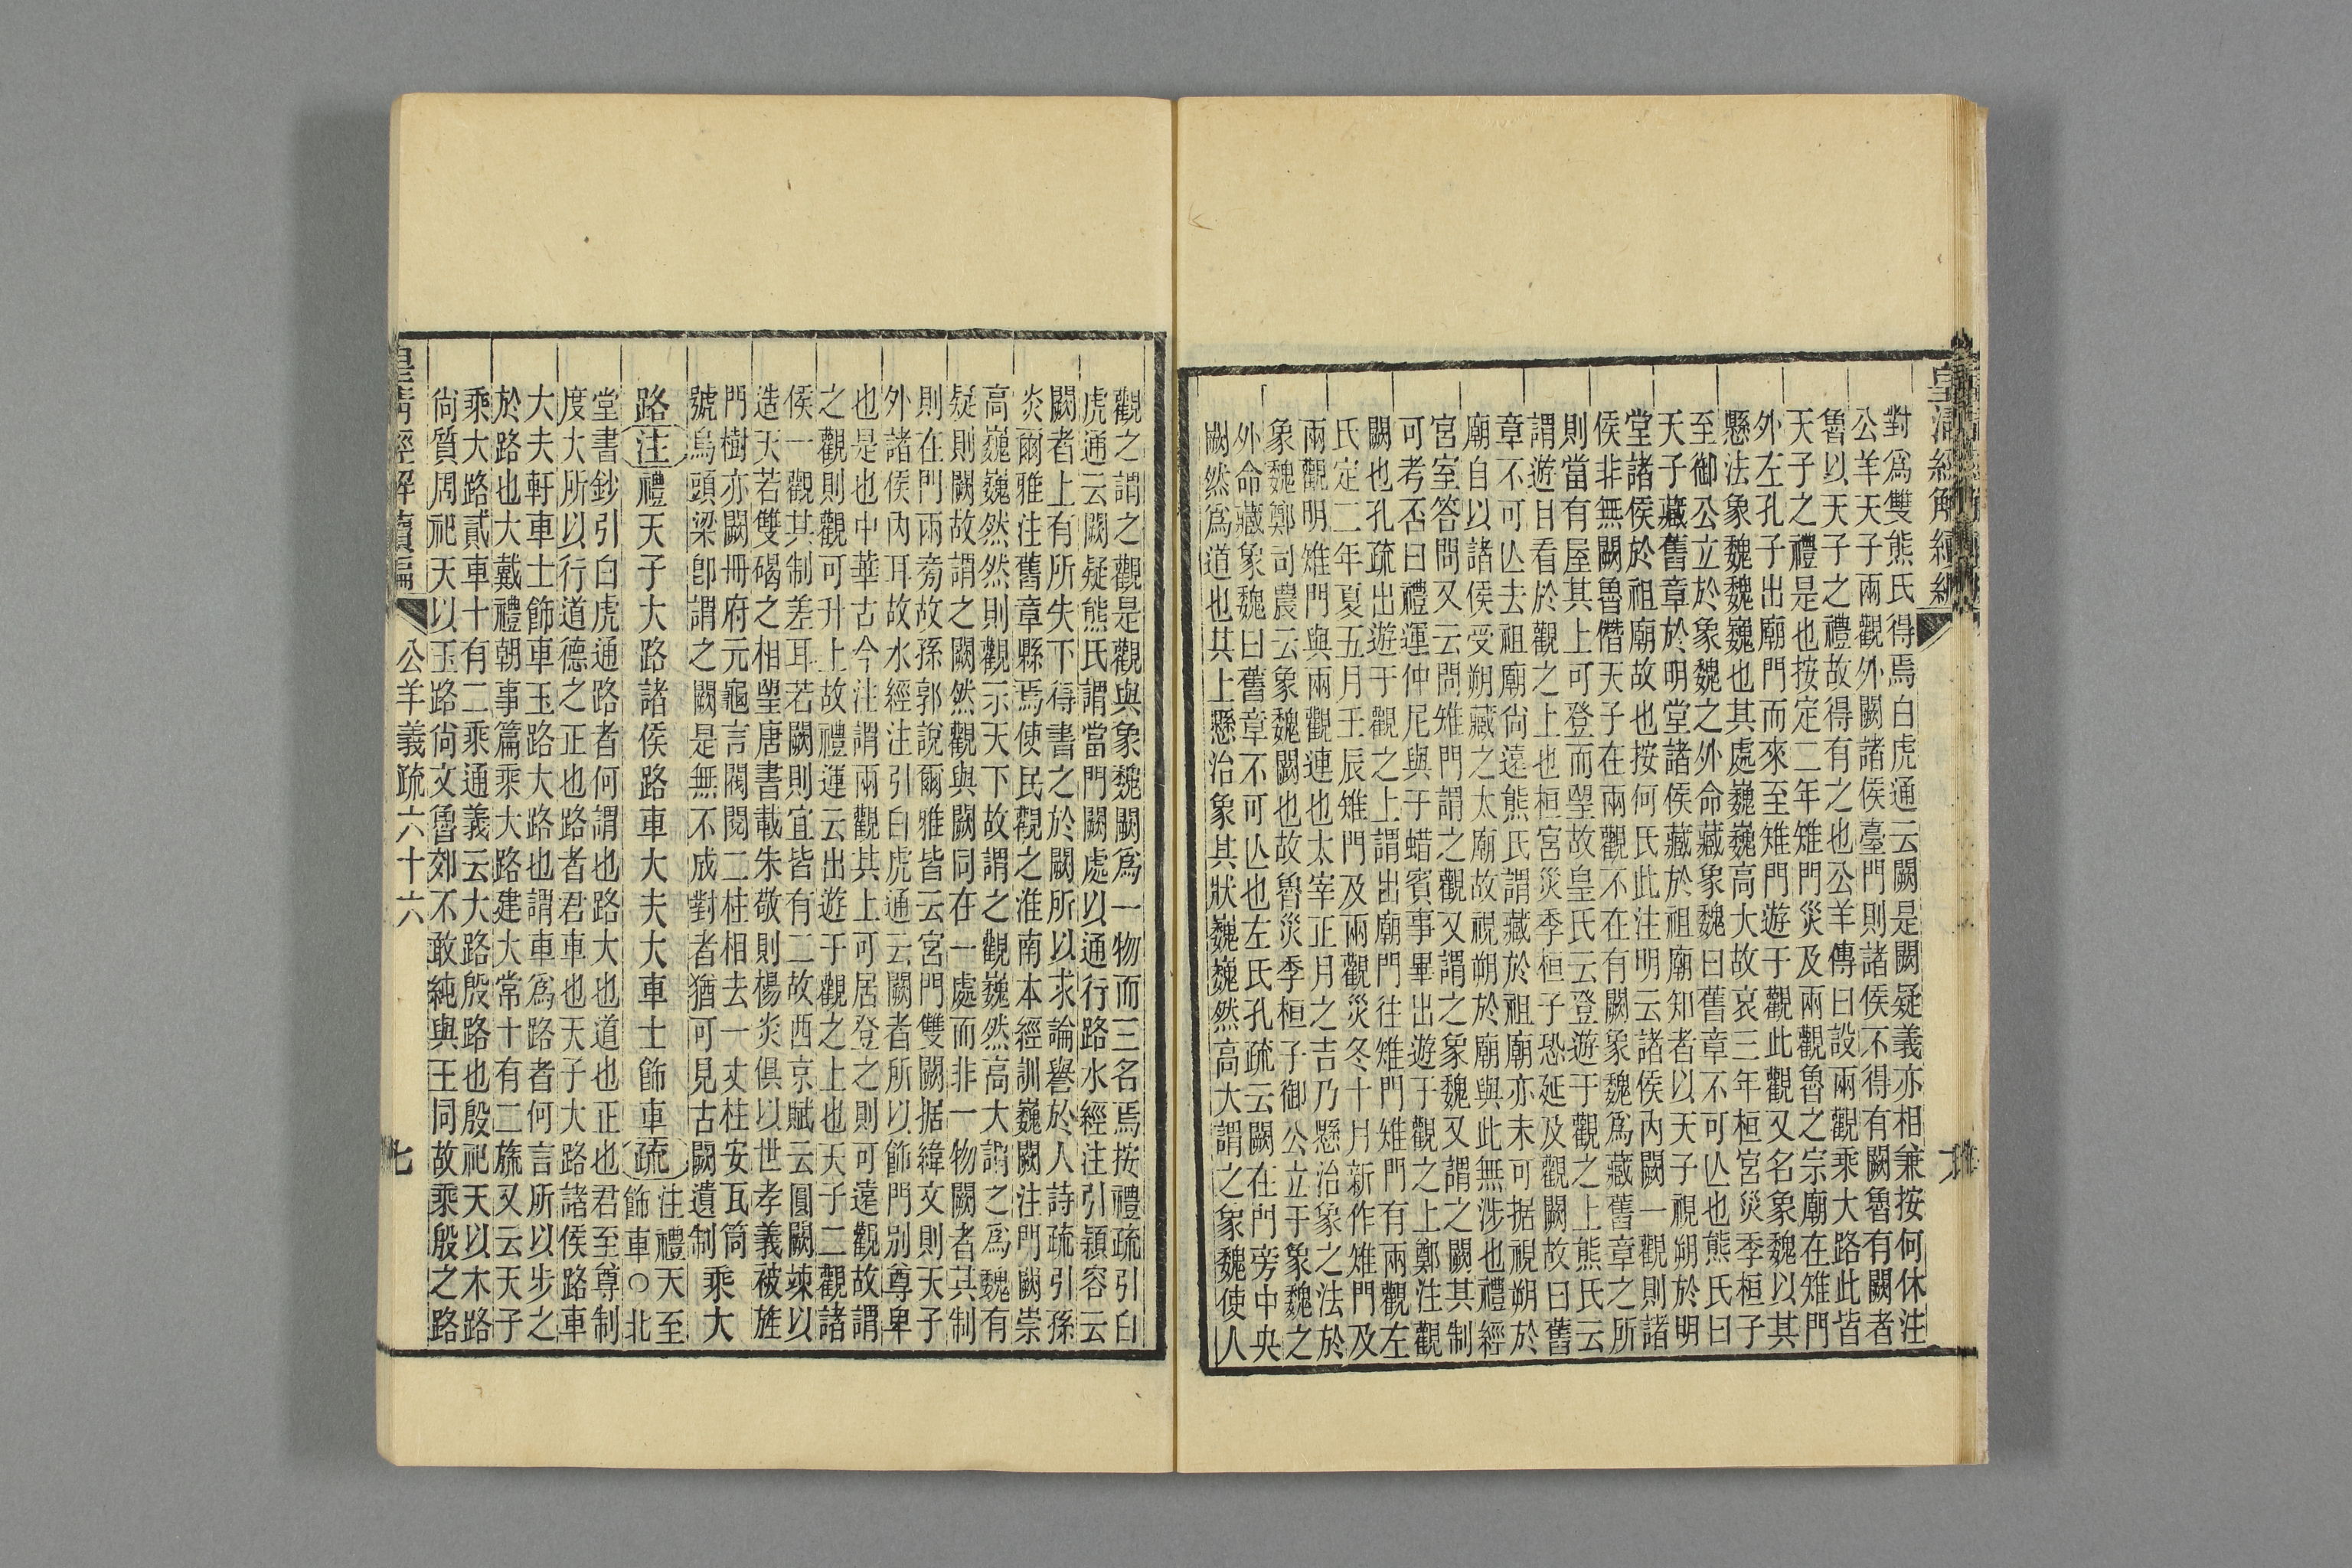 皇清經解續編
對爲雙熊氏得焉白虎通云闕是闕疑義亦相兼按何休注
公羊天子兩觀外闕諸侯臺門則諸侯不得有闕魯有闕者
魯以天子之禮故得有之也公羊傳曰設兩觀乘大路此皆
天子之禮是也按定二年雉門災及兩觀魯之宗廟在雉門
外左孔子出廟門而來至雉門遊于觀此觀又名象魏以其
懸法象魏魏巍也其處巍巍高大故哀三年桓宮災季桓子
至御公立於象魏之外命藏象魏曰舊章不可亾也熊氏曰
天子藏舊章於明堂諸侯藏於祖廟知者以天子視朔於明
堂諸侯於祖廟故也按何氏此注明云諸侯內闕一觀則諸
侯非無闕魯僭天子在兩觀不在有闕象魏爲藏舊章之所
則當有屋其上可登而望故皇氏云登遊于觀之上熊氏云
謂遊目看於觀之上也桓宮災季桓子恐延及觀闕故曰舊
章不可亾去祖廟尙遠熊氏謂藏於祖廟亦未可据視朔於
廟自以諸侯受朔藏之太廟故視朔於廟與此無涉也禮經
宮室答問又云問雉門謂之觀又謂之象魏又謂之闕其制
可考否曰禮運仲尼與于蜡賓事畢出遊于觀之上鄭注觀
闕也孔疏出遊于觀之上謂出廟門往雉門雉門有兩觀左
氏定二年夏五月壬辰雉門及兩觀災冬十月新作雉門及
兩觀明雉門與兩觀連也太宰正月之吉乃懸治象之法於
象魏鄭司農云象魏闕也故魯災季桓子御公立于象魏之
外命藏象魏曰舊章不可亾也左氏孔疏云闕在門旁中央
闕然爲道也其上懸治象其狀巍巍然高大謂之象魏使人
觀之謂之觀是觀與象魏闕爲一物而三名焉按禮疏引白
虎通云闕疑熊氏謂當門闕處以通行路水經注引潁容云
闕者上有所失下得書之於闕所以求論譽於人詩疏引孫
炎爾雅注舊章縣焉使民觀之淮南本經訓巍闕注門闕崇
高巍巍然然則觀示天下故謂之觀巍然高大謂之爲魏有
疑則闕故謂之闕然觀與闕同在一處而非一物闕者其制
則在門兩旁故孫郭說爾雅皆云宮門雙闕据緯文則天子
外諸侯內耳故水經注引白虎通云闕者所以飾門別尊卑
也是也中華古今注謂兩觀其上可居登之則可遠觀故謂
之觀則觀可升上故禮運云出遊于觀之上也天子二觀諸
侯一觀其制差耳若闕則宜皆有二故西京賦云圜闕竦以
造天若雙碣之相望唐書載朱敬則楊炎俱以世孝義被旌
門樹亦闕冊府元龜言閥閱二柱相去一丈柱安瓦筒
號烏頭梁卽謂之闕是無不成對者猶可見古闕遺制
乘大
路注禮天子大路諸侯路車大夫大車士飾車疏
注禮天至
飾車○北
堂書鈔引白虎通路者何謂也路大也道也正也君至尊制
度大所以行道德之正也路者君車也天子大路諸侯路車
大夫軒車士飾車玉路大路也謂車爲路者何言所以步之
於路也大戴禮朝事篇乘大路建大常十有二旒又云天子
乘大路貳車十有二乘通義云大路殷路也殷祀天以木路
尙質周祀天以玉路尙文魯郊不敢純與王同故乘殷之路
皇清經解續編
公羊義疏六十六
七